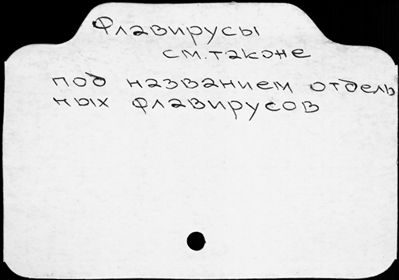 Флавирусы
см. также
под названием отдель
ных флавирусов